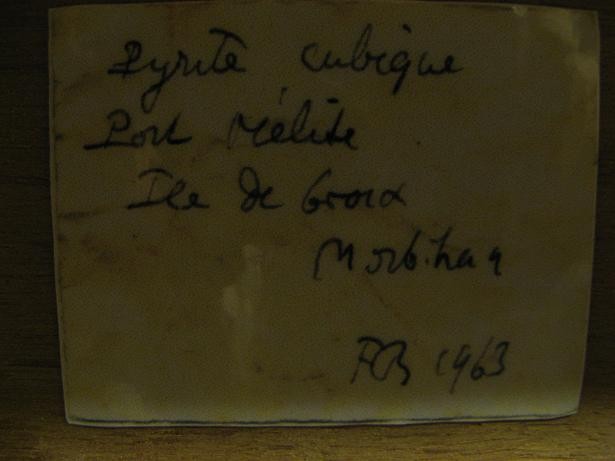 Pyrite cubique
Port Mélite
Ile de Groix
Morbihan
FCB 1963